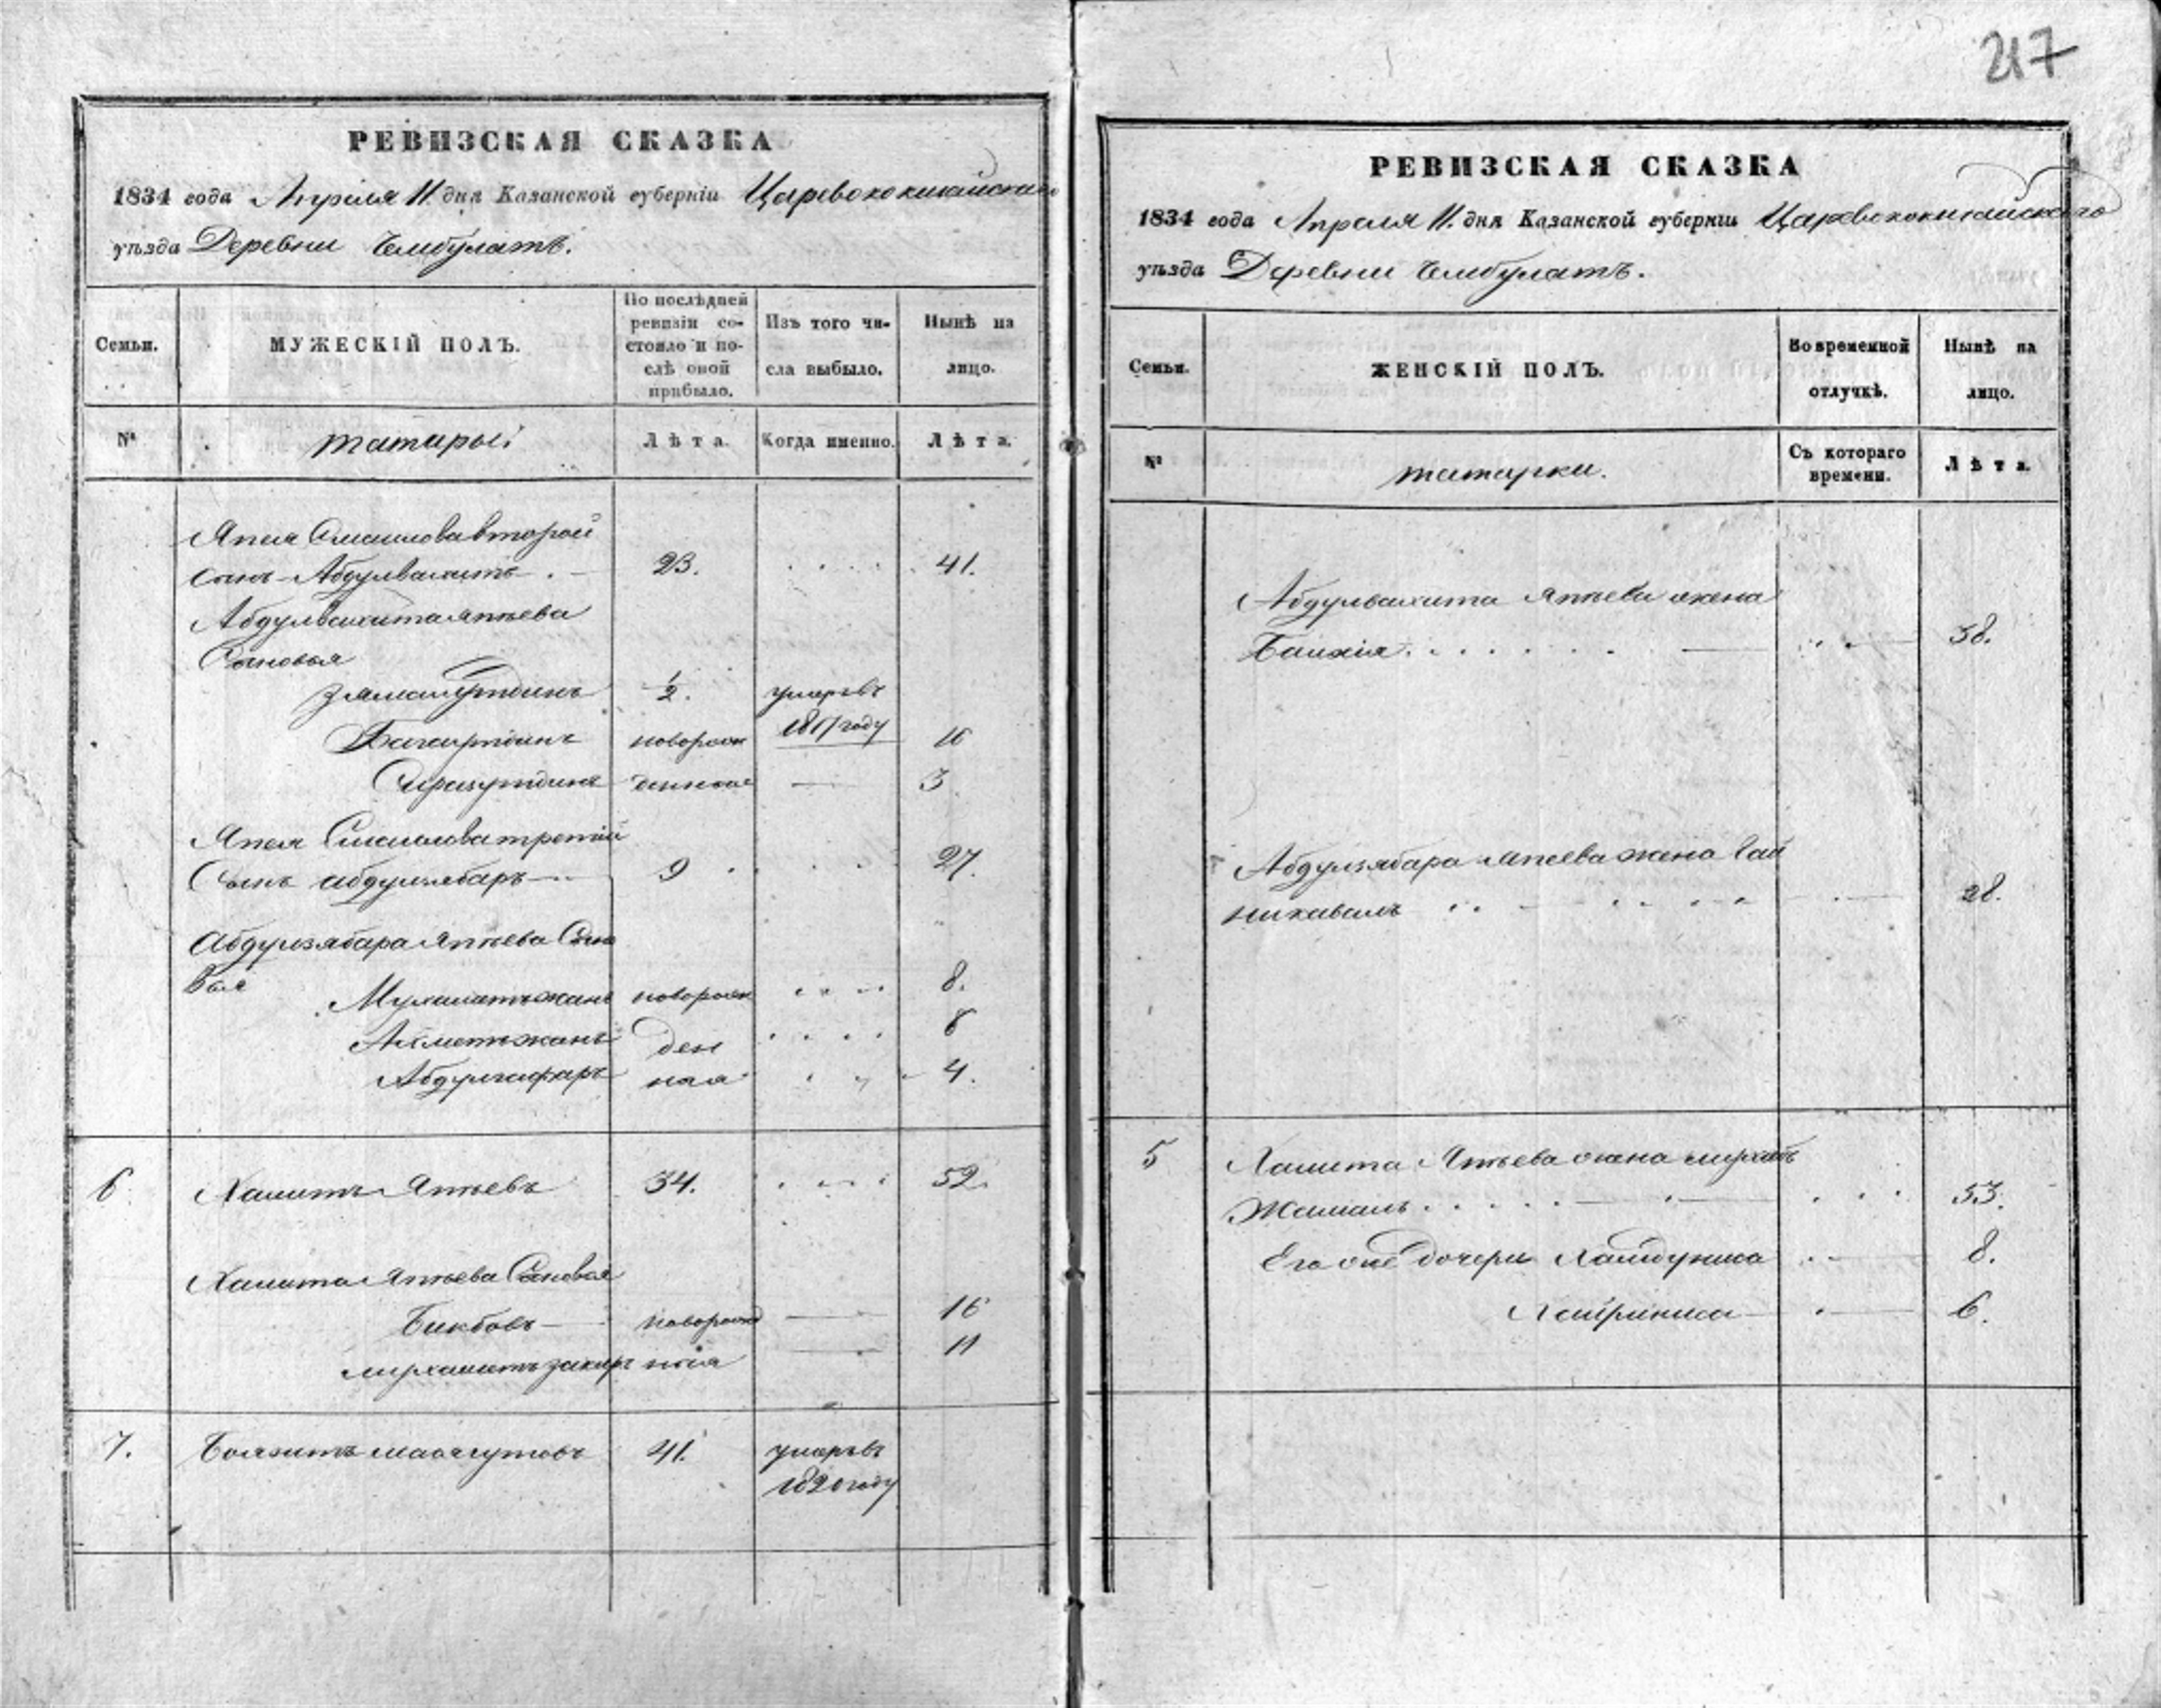 217
РЕВИЗСКАЯ СКАЗКА
1834 года Апреля 11. дня Казанской губерніи Царевококшайскаго
уѣзда Деревни Ембулатъ.
Семьи.
МУЖЕСКІЙ ПОЛЪ.
По послѣдней ревизіи состояло и послѣ оной прибыло.
Изъ того числа выбыло.
Нынѣ на лицо.
№
татары:
Лѣта.
Когда именно.
Лѣта.
Япея Смаилова второй
сынъ Абдулвахитъ 23. 41.
Абдулвахита Япѣева
Сыновья
1/2. умеръ въ
1817 году
новорож 16
денныя 3
Япея Смаилова третій
Сынъ абдулзябаръ 9 27.
Абдулзябара Япѣева Сыно
вья
Мухаметьжанъ новорож 8.
Ахметьжанъ ден 6
Абдулгафаръ ныя 4.
6. Хамитъ Япѣевъ 34. 52.
Хамита Япѣева Сыновья
Бикбовъ новорожд 16
мухаметьзакиръ ныя 11
7. Баязитъ Масагутовъ 41. умеръ въ
1820 году
РЕВИЗСКАЯ СКАЗКА
1834 года Апреля 11. дня Казанской губерніи Царевококшайскаго
уѣзда Деревни Ембулатъ.
Семьи.
ЖЕНСКІЙ ПОЛЪ.
Во временной отлучкѣ.
Нынѣ на лицо.
№
татарки.
Съ котораго времени.
Лѣта.
Абдулвахита Япѣева жена
38.
Абдулзябара Япеева жена Бай
никамалъ 28.
5 Хамита Япѣева жена
Жамалъ 53.
Его же дочери Хамдуниса 8.
Хайриниса 6.